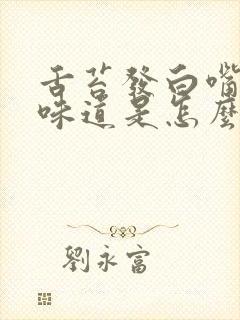 舌苔發白嘴
味道是怎麼
劉永富